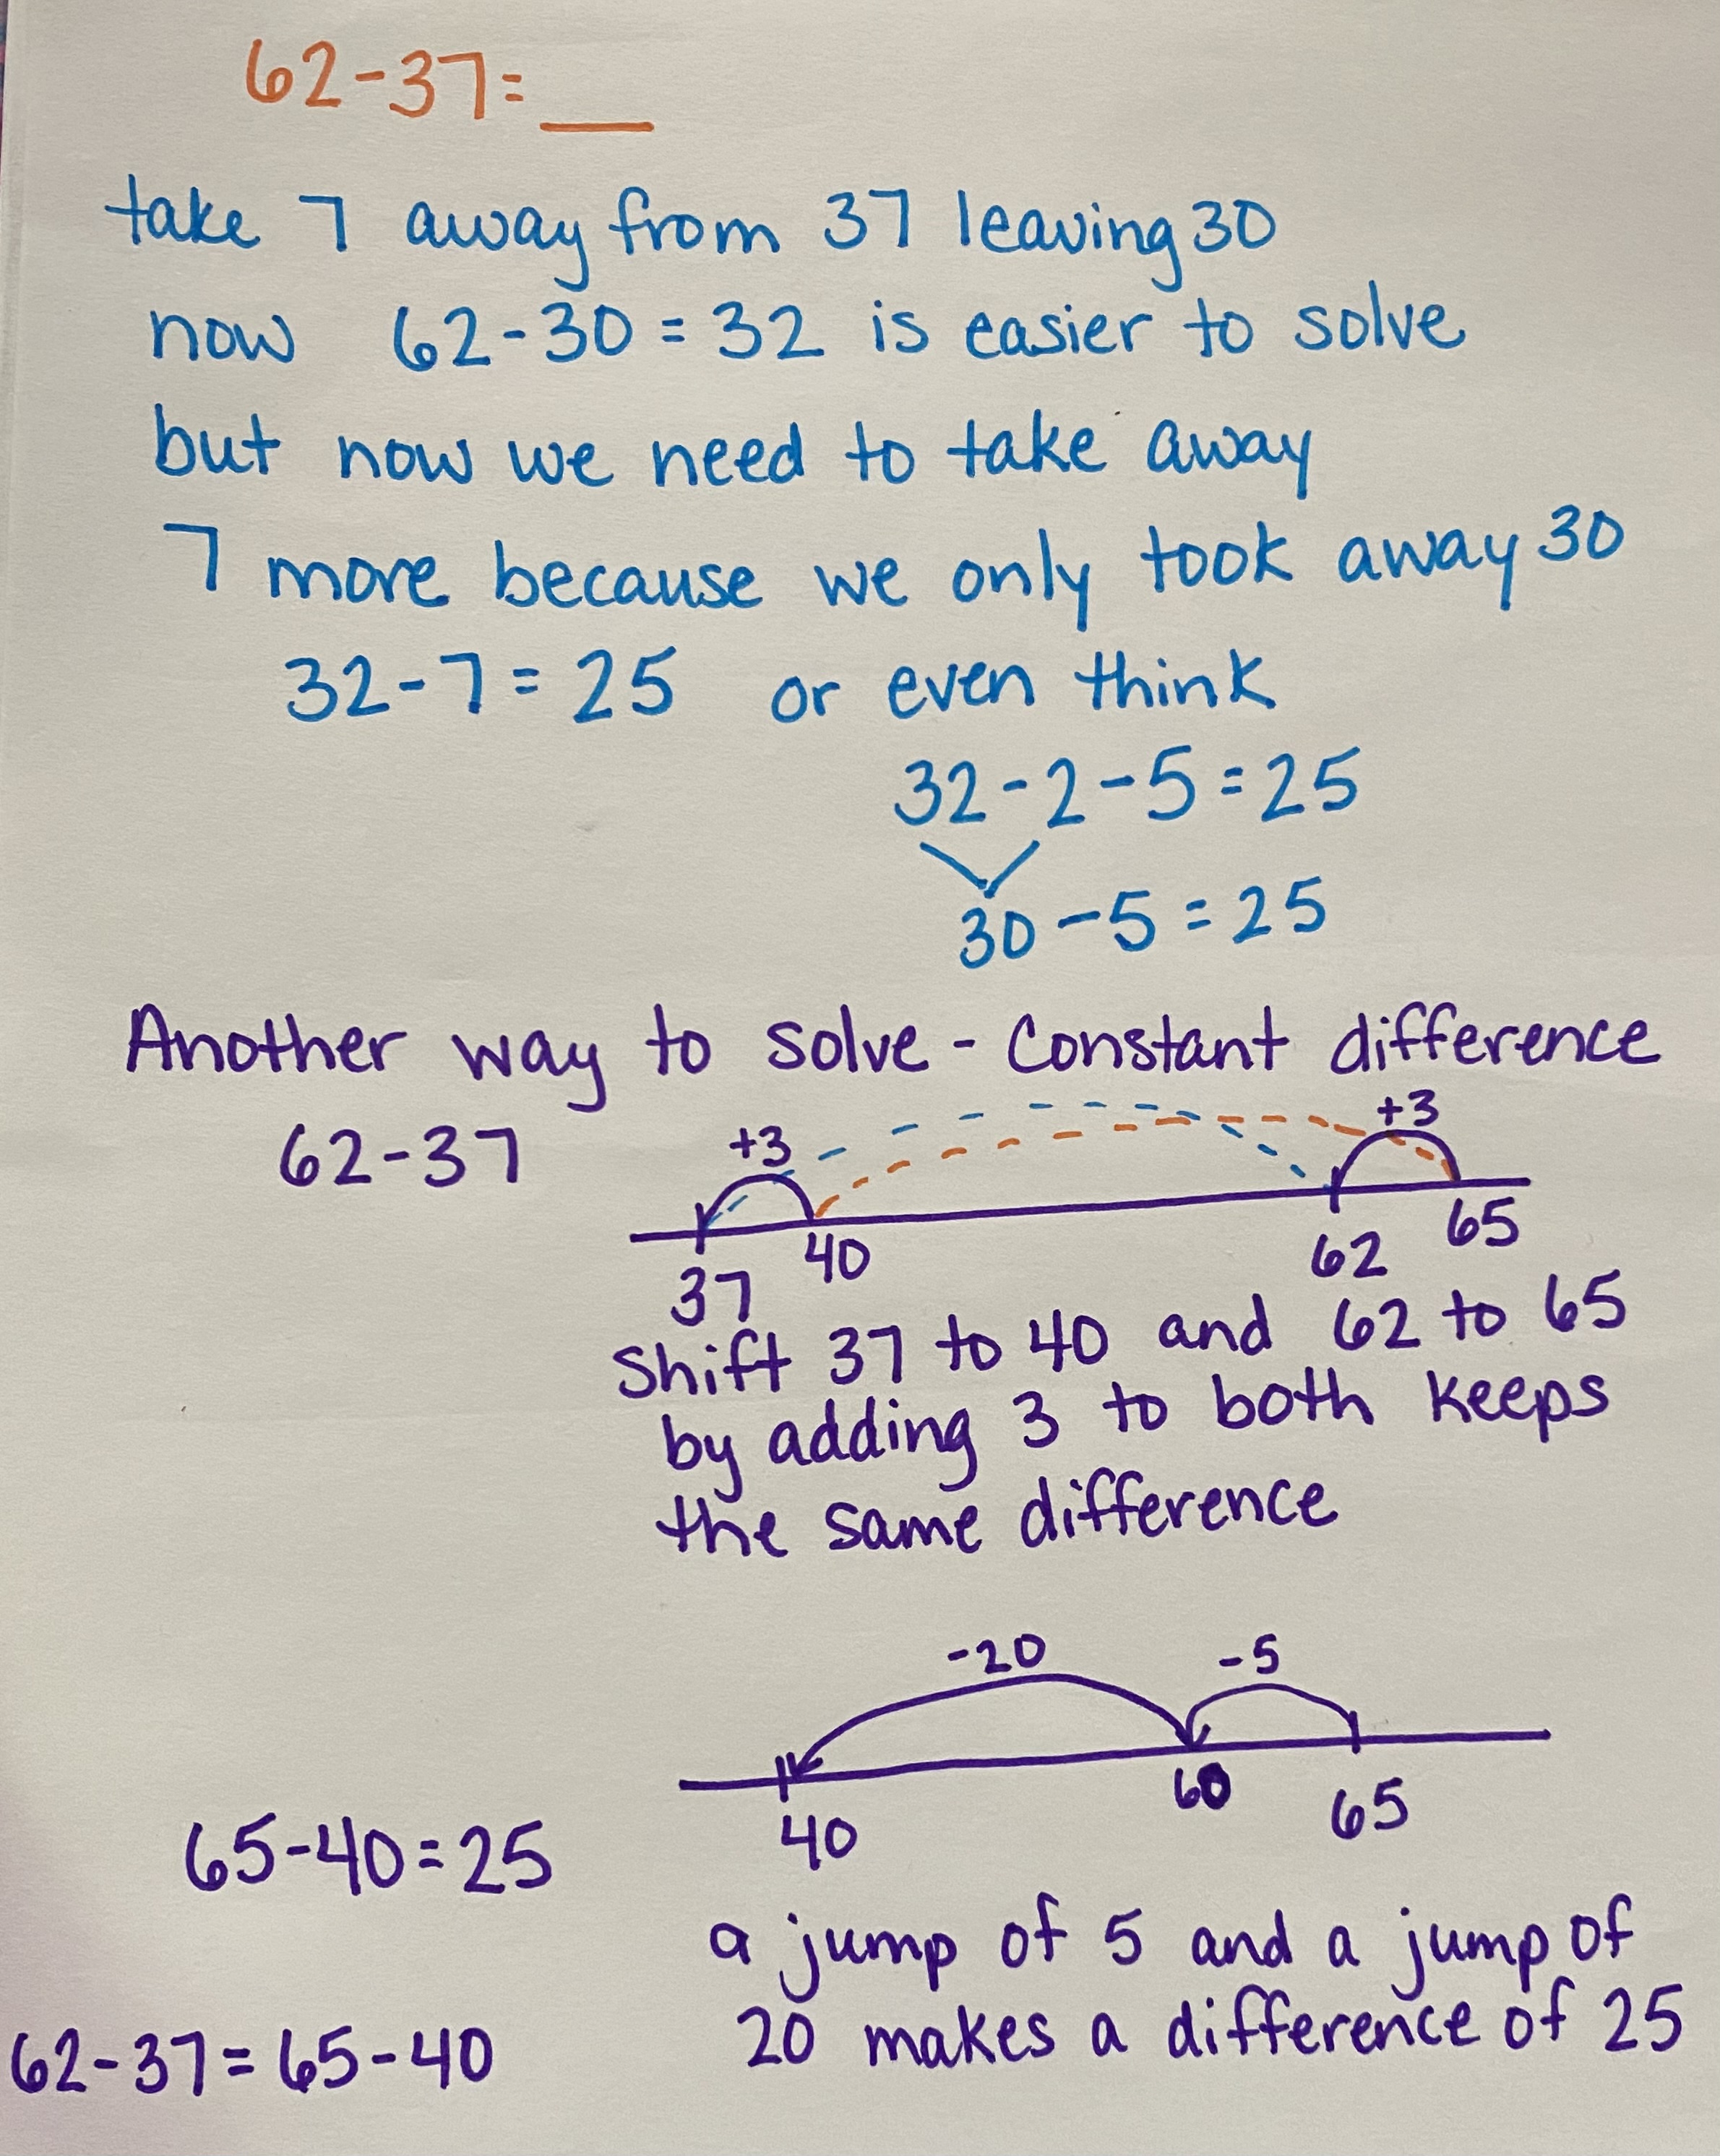 62-37=__
take 7 away from 37 leaving 30
now 62-30=32 is easier to solve
but now we need to take away
7 more because we only took away 30
32-7=25 or even think
32-2-5=25
30-5=25
Another way to solve - Constant difference
62-37
+3
+3
37
40
62
65
Shift 37 to 40 and 62 to 65
by adding 3 to both keeps
the same difference
-20
-5
40
60
65
65-40=25
a jump of 5 and a jump of
20 makes a difference of 25
62-37=65-40